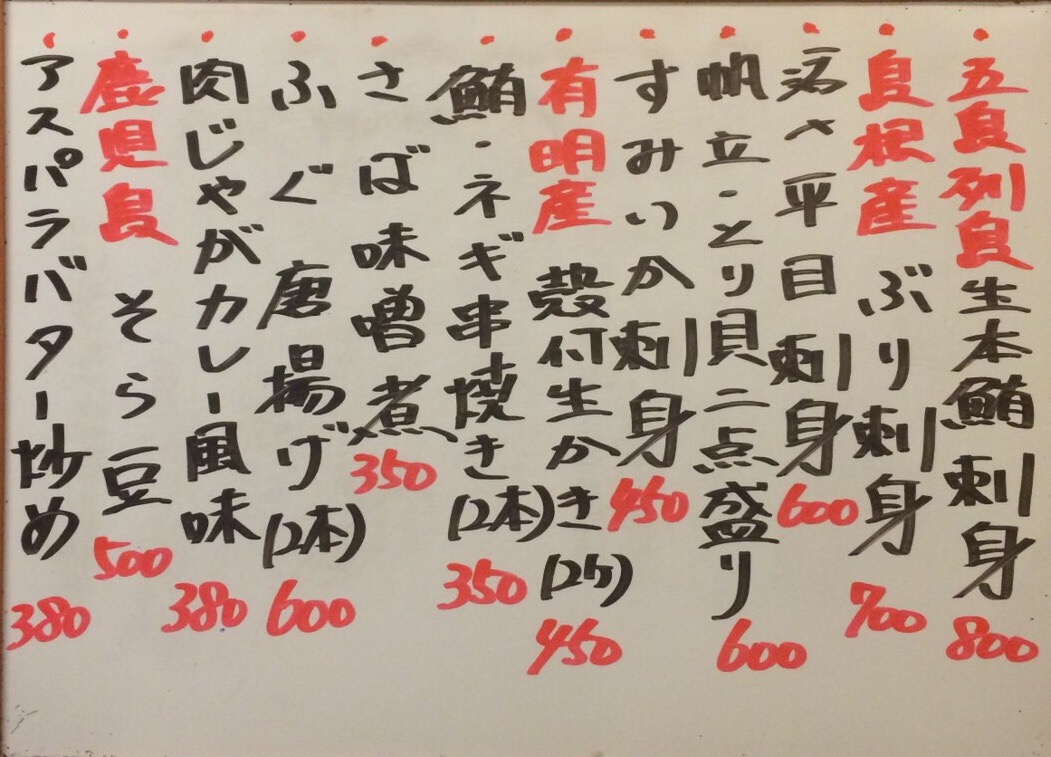 ・五島列島生本鮪刺身 800
・島根産 ぶり刺身 700
・活〆平目刺身 600
・帆立・とり貝二点盛り 600
・すみいか刺身 450
・有明産 殻付生かき(2ヶ) 450
・鮪・ネギ串焼き(2本) 350
・さば味噌煮 350
・ふぐ唐揚げ(2本) 600
・肉じゃがカレー風味 380
・鹿児島 そら豆 500
・アスパラバター炒め 380